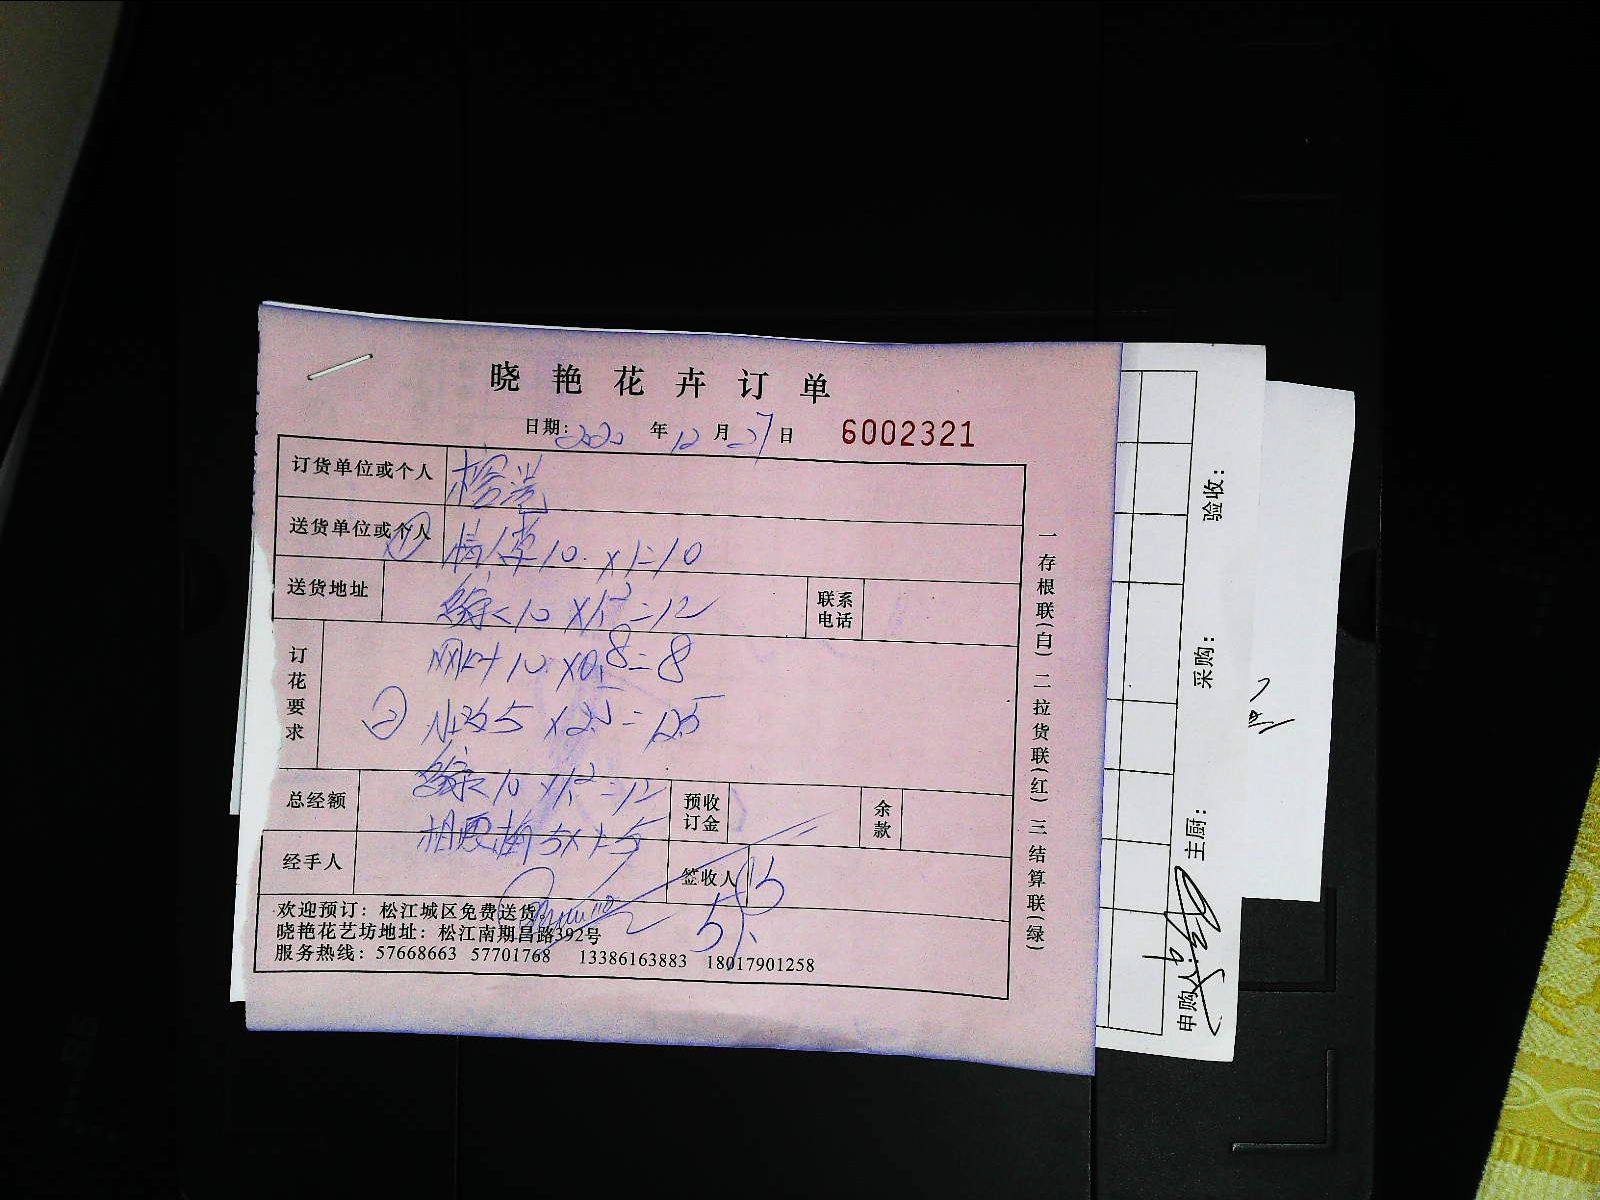 晓艳花卉订单
日期: 2020 年 12 月 27 日 6002321
订货单位或个人
送货单位或个人 ① 情人草 10 × 1 = 10
送货地址 10 × 1.2 = 12 联系电话
订花要求 10 × 0.8 = 8
② 5 × 2.5 = 12.5
10 × 1.2 = 12
总经额 预收订金 余款
5 × 1 = 5
经手人 签收人
欢迎预订：松江城区免费送货。
晓艳花艺坊地址：松江南期昌路392号
服务热线：57668663 57701768 13386163883 18017901258
一存根联(白) 二拉货联(红) 三结算联(绿)
验收：
采购：
主厨：
申购人：